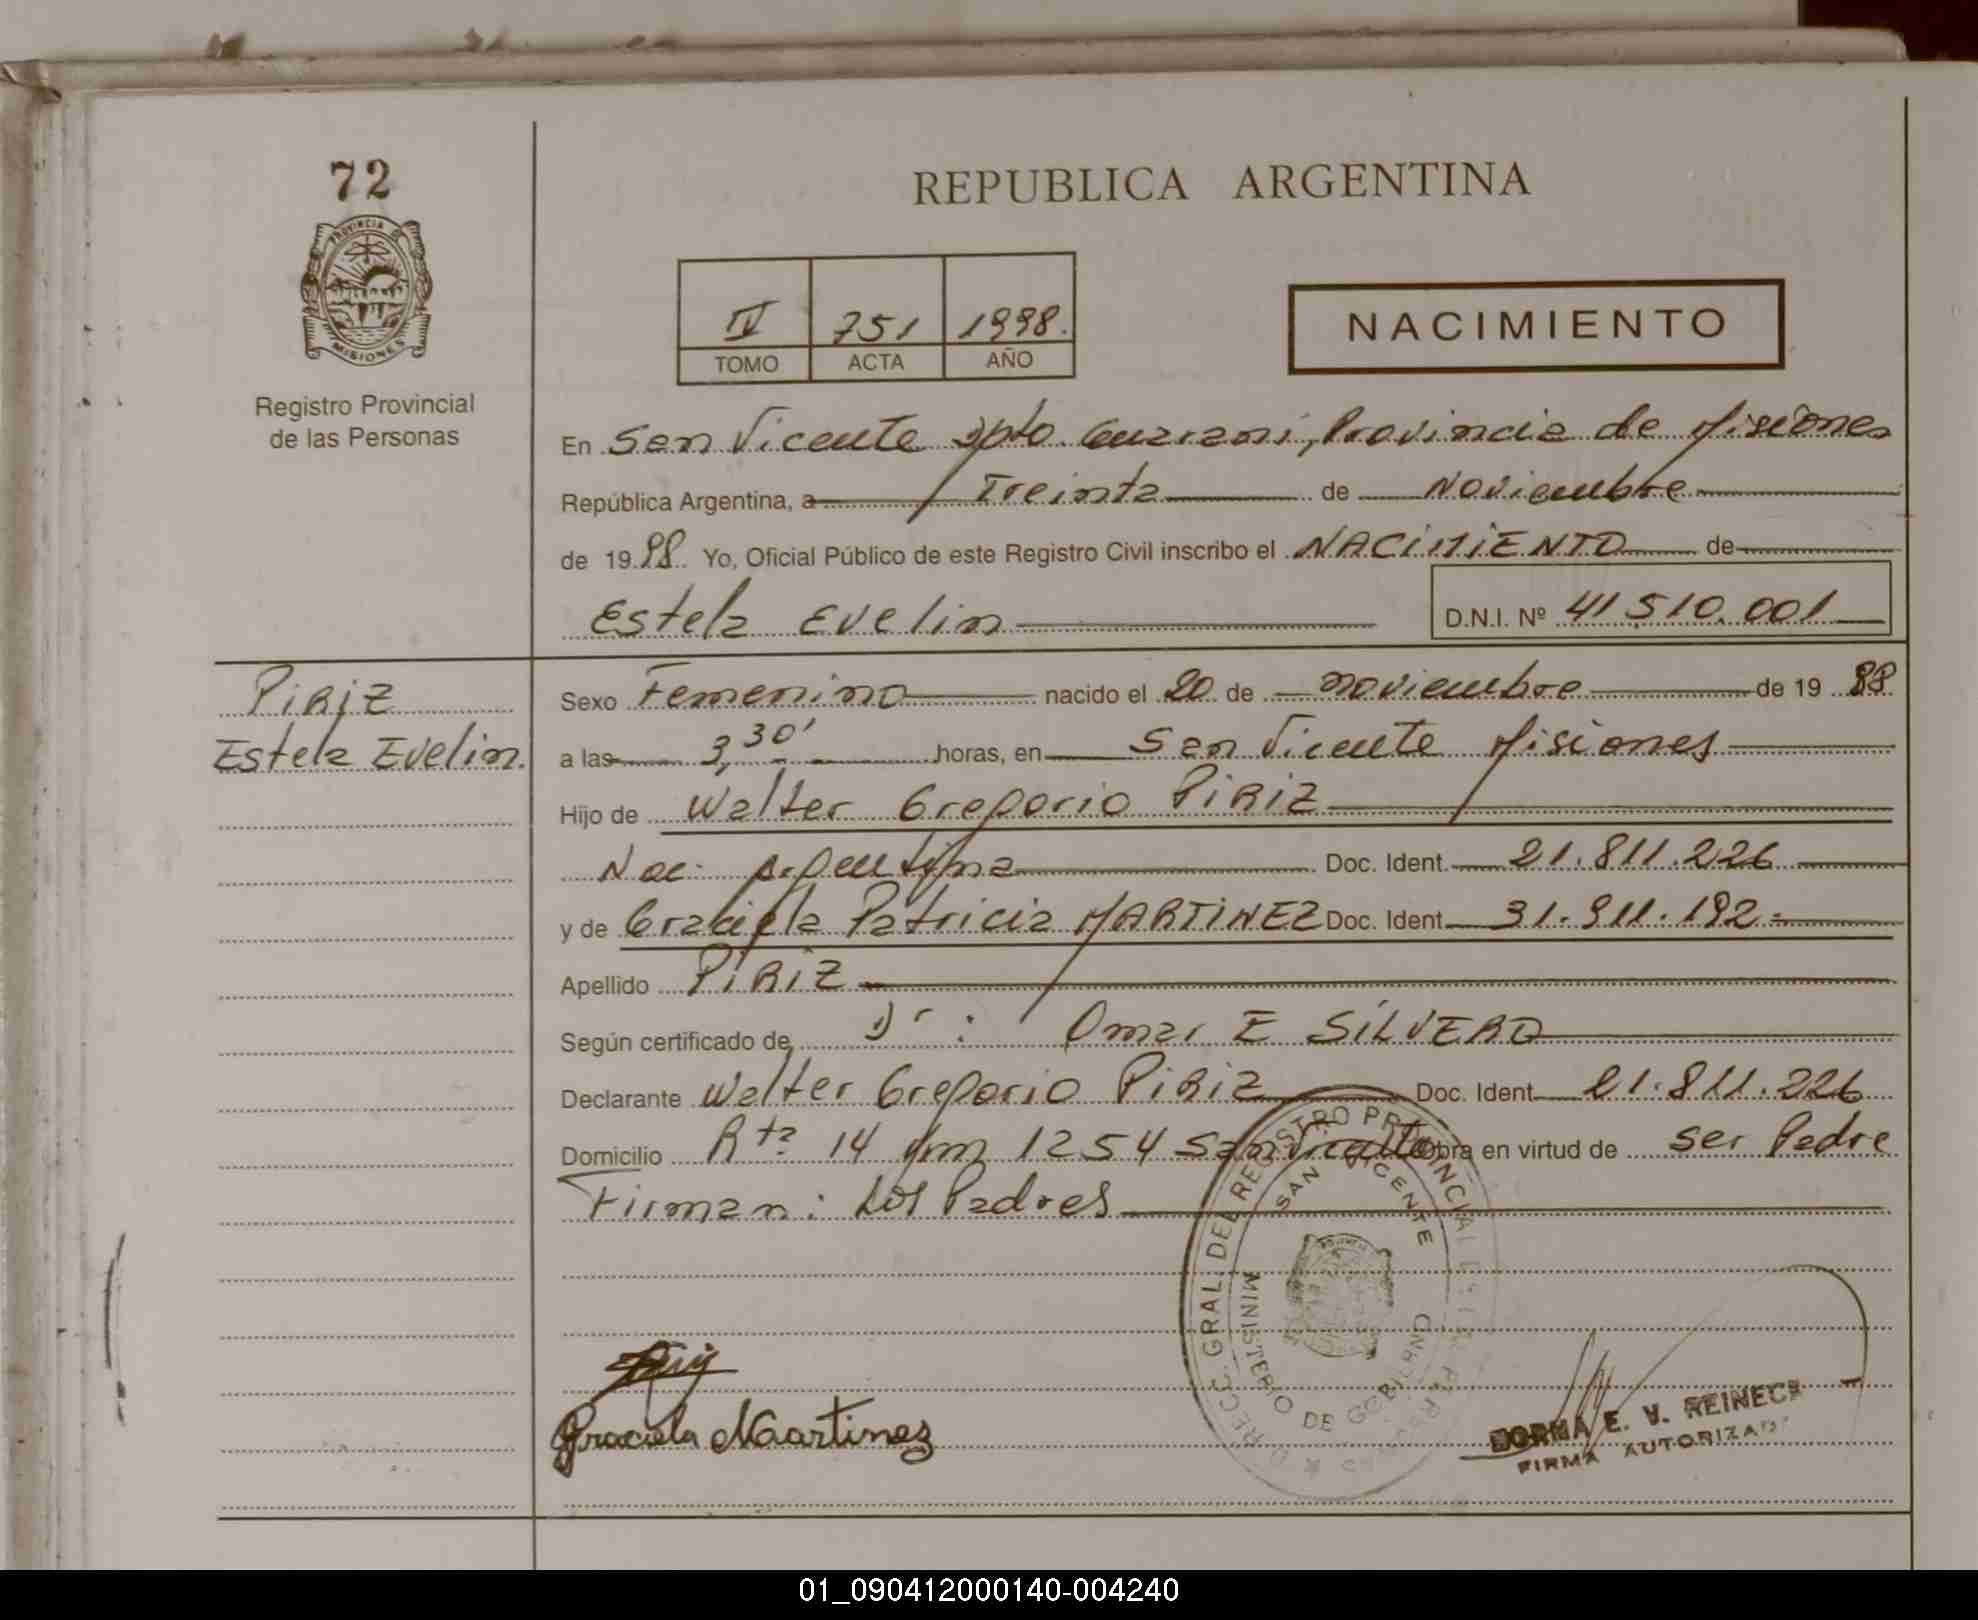 72
REPUBLICA ARGENTINA
PROVINCIA DE
MISIONES
Registro Provincial
de las Personas
IV 751 1998.
TOMO ACTA AÑO
NACIMIENTO
En San Vicente Dpto. Guarani, Provincia de Misiones
República Argentina, a Treinta de Noviembre
de 19 98. Yo, Oficial Público de este Registro Civil inscribo el NACIMIENTO de
Estela Evelin D.N.I. Nº 41.510.001
PIRIZ
Estela Evelin.
Sexo Femenino nacido el 20 de noviembre de 19 98
a las 3,30' horas, en San Vicente Misiones
Hijo de Walter Gregorio PIRIZ
Nac. Argentina Doc. Ident. 21.811.226
y de Graciela Patricia MARTINEZ Doc. Ident. 31.911.192.
Apellido PIRIZ
Según certificado de Dr: Omar E SILVERO
Declarante Walter Gregorio PIRIZ Doc. Ident. 21.811.226
Domicilio Rta 14 Km 1254 San Vicente Obra en virtud de ser Padre
Firman: Los Padres
SAN VICENTE
MINISTERIO DE GOBIERNO
Graciela Martinez
NORMA E. V. REINECK
FIRMA AUTORIZADA
01_090412000140-004240